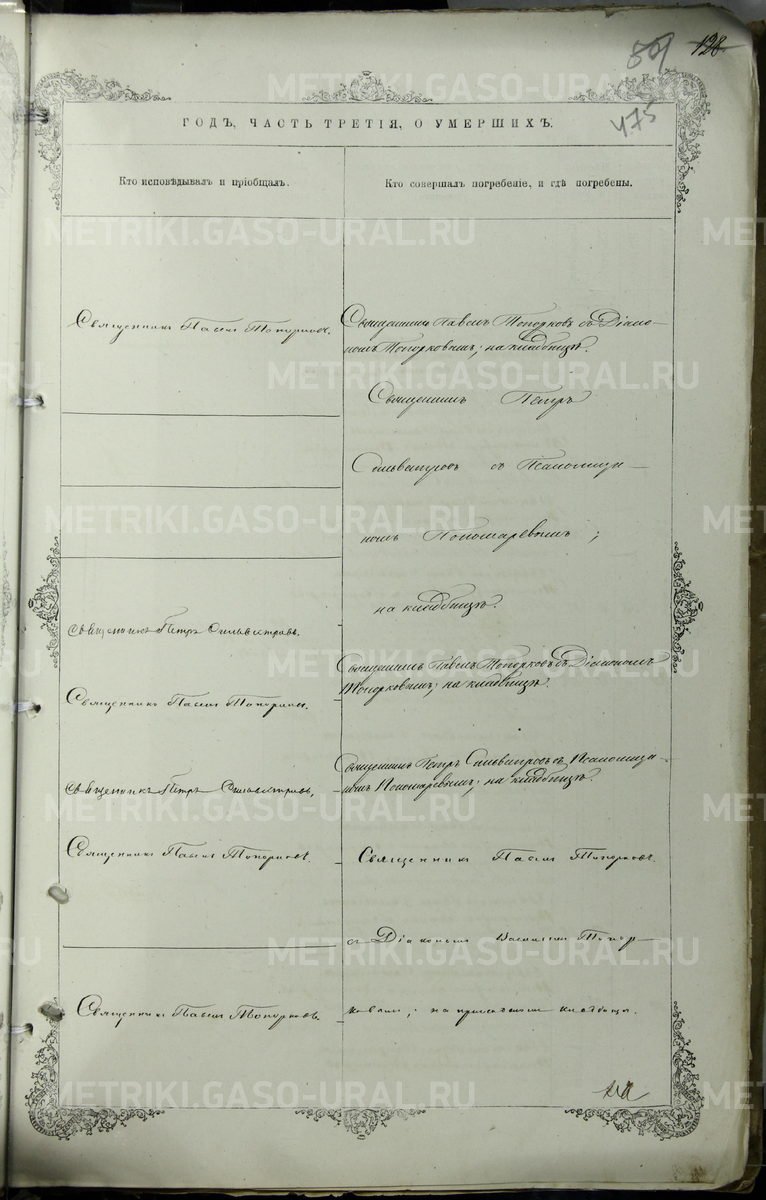 128
501
475
ГОДЪ, ЧАСТЬ ТРЕТІЯ, О УМЕРШИХЪ.
Кто исповѣдывалъ и пріобщалъ.
Кто совершалъ погребеніе, и гдѣ погребены.
Священникъ Павелъ Топорковъ.
Священникъ Павелъ Топорковъ съ Діако-
номъ Топорковымъ; на кладбищѣ.
Священникъ Петръ
Сильвестровъ съ Псаломщи-
комъ Пономаревымъ;
на кладбищѣ.
Священникъ Петръ Сильвестровъ.
Священникъ Павелъ Топорковъ съ Діакономъ
Топорковымъ; на кладбищѣ.
Священникъ Павелъ Топорковъ.
Священникъ Петръ Сильвестровъ съ Псаломщи-
комъ Пономаревымъ; на кладбищѣ.
Священникъ Петръ Сильвестровъ.
Священникъ Павелъ Топорковъ.
Священникъ Павелъ Топорковъ
съ Діакономъ Василіемъ Топор-
ковымъ; на приходскомъ кладбищѣ.
Священникъ Павелъ Топорковъ.
METRIKI.GASO-URAL.RU